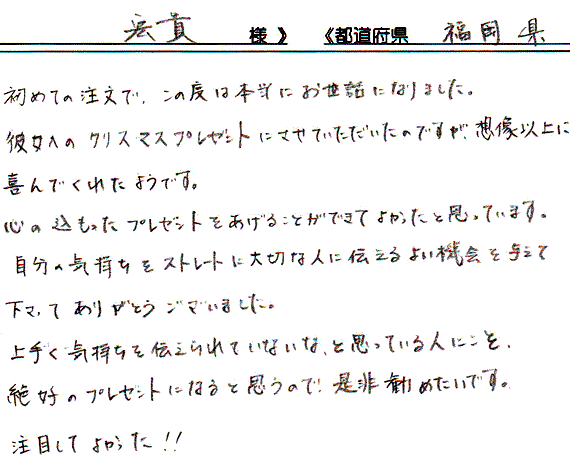 宏貴 様 》 《都道府県 福岡 県
初めての注文で、この度は本当にお世話になりました。
彼女へのクリスマスプレゼントにさせていただいたのですが、想像以上に
喜んでくれたようです。
心の込もったプレゼントをあげることができてよかったと思っています。
自分の気持ちをストレートに大切な人に伝えるよい機会を与えて
下さってありがとうございました。
上手く気持ちを伝えられていないな、と思っている人にこそ、
絶好のプレゼントになると思うので、是非勧めたいです。
注目してよかった!!